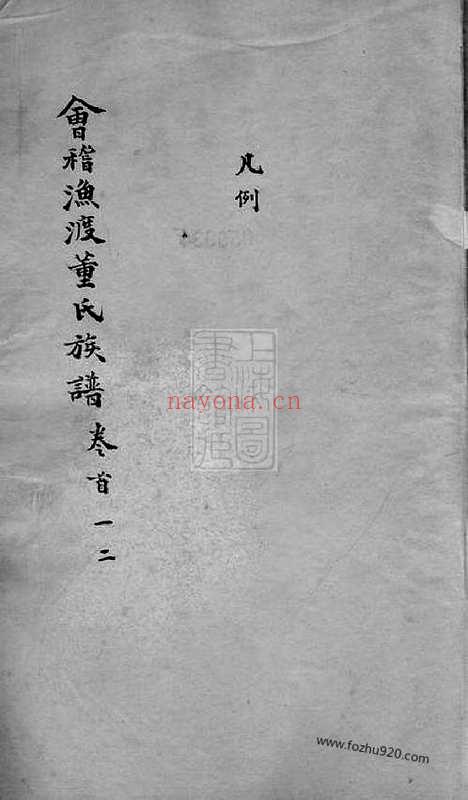 凡例
會稽漁渡董氏族譜 卷首 一 二
上海圖書館藏
nayona.cn
www.fozhu920.com